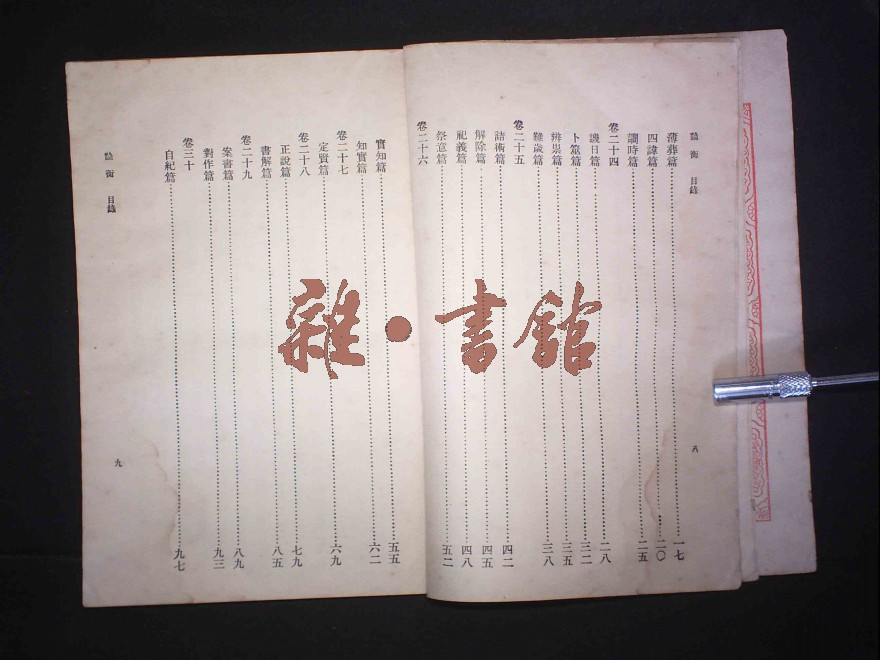 論衡 目錄 八
薄葬篇……一七
四諱篇……二〇
調時篇……二五
卷二十四
譏日篇……二八
卜筮篇……三二
辨祟篇……三五
難歲篇……三八
卷二十五
詰術篇……四二
解除篇……四五
祀義篇……四八
祭意篇……五二
卷二十六
實知篇……五五
知實篇……六二
卷二十七
定賢篇……六九
卷二十八
正說篇……七九
書解篇……八五
卷二十九
案書篇……八九
對作篇……九三
卷三十
自紀篇……九七
論衡 目錄 九
雜·書館